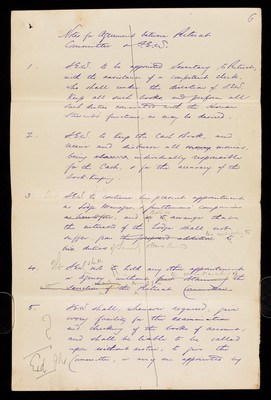 6
Notes for Agreement between Retreat
Committee & H.E.W.
1. H.E.W. to be appointed Secretary to Retreat,
with the assistance of a competent clerk,
who shall under the direction of H.E.W.
keep all such books and perform all
such duties connected with the
as may be desired.
2. H.E.W. to keep the Cash Book, and
receive and disburse all moneys,
being individually responsible
for the Cash, & for the accuracy of the
book-keeping.
3. H.E.W. to continue his present appointment
as Lodge Manager, & gentlemen's companion
as heretofore, and so to arrange that
the interests of the Lodge shall not
suffer from the proposed addition to
his duties
4. H.E.W. not to hold any other appointment
or Agency
sanction of the Retreat Committee.
5. H.E.W. shall, whenever required, give
every facility for the examination
and checking of the books of account,
and shall be liable to be called
upon without notice, to give the
Committee, or any one appointed by